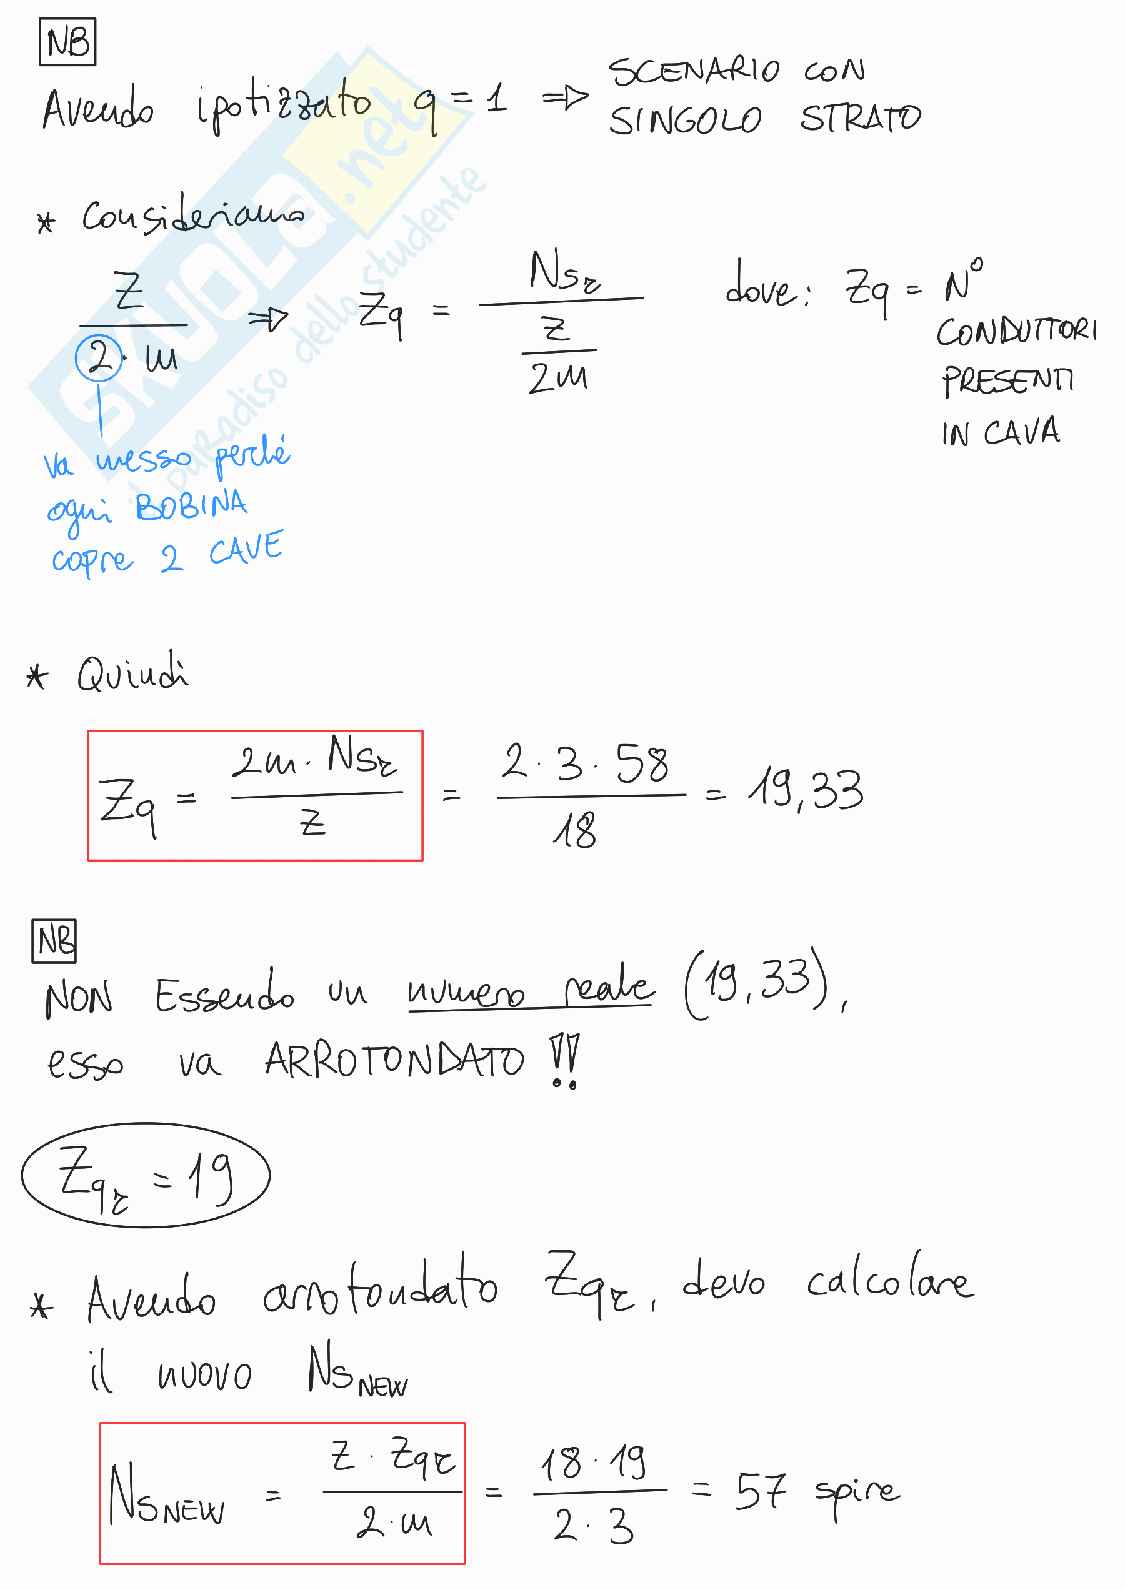 NB
Avendo ipotizzato q = 1 => SCENARIO CON
SINGOLO STRATO
* Consideriamo
Z / 2·m => Zq = Nsr / (z / 2m) dove: Zq = N°
CONDUTTORI
PRESENTI
IN CAVA
va messo perché
ogni BOBINA
copre 2 CAVE
* Quindi
Zq = 2m · Nsr / z = 2 · 3 · 58 / 18 = 19,33
NB
NON Essendo un numero reale (19,33),
esso va ARROTONDATO !!
Zqr = 19
* Avendo arrotondato Zqr, devo calcolare
il nuovo NsNEW
NsNEW = z · Zqr / 2·m = 18 · 19 / 2 · 3 = 57 spire
SKUOLA.net
il paradiso dello studente